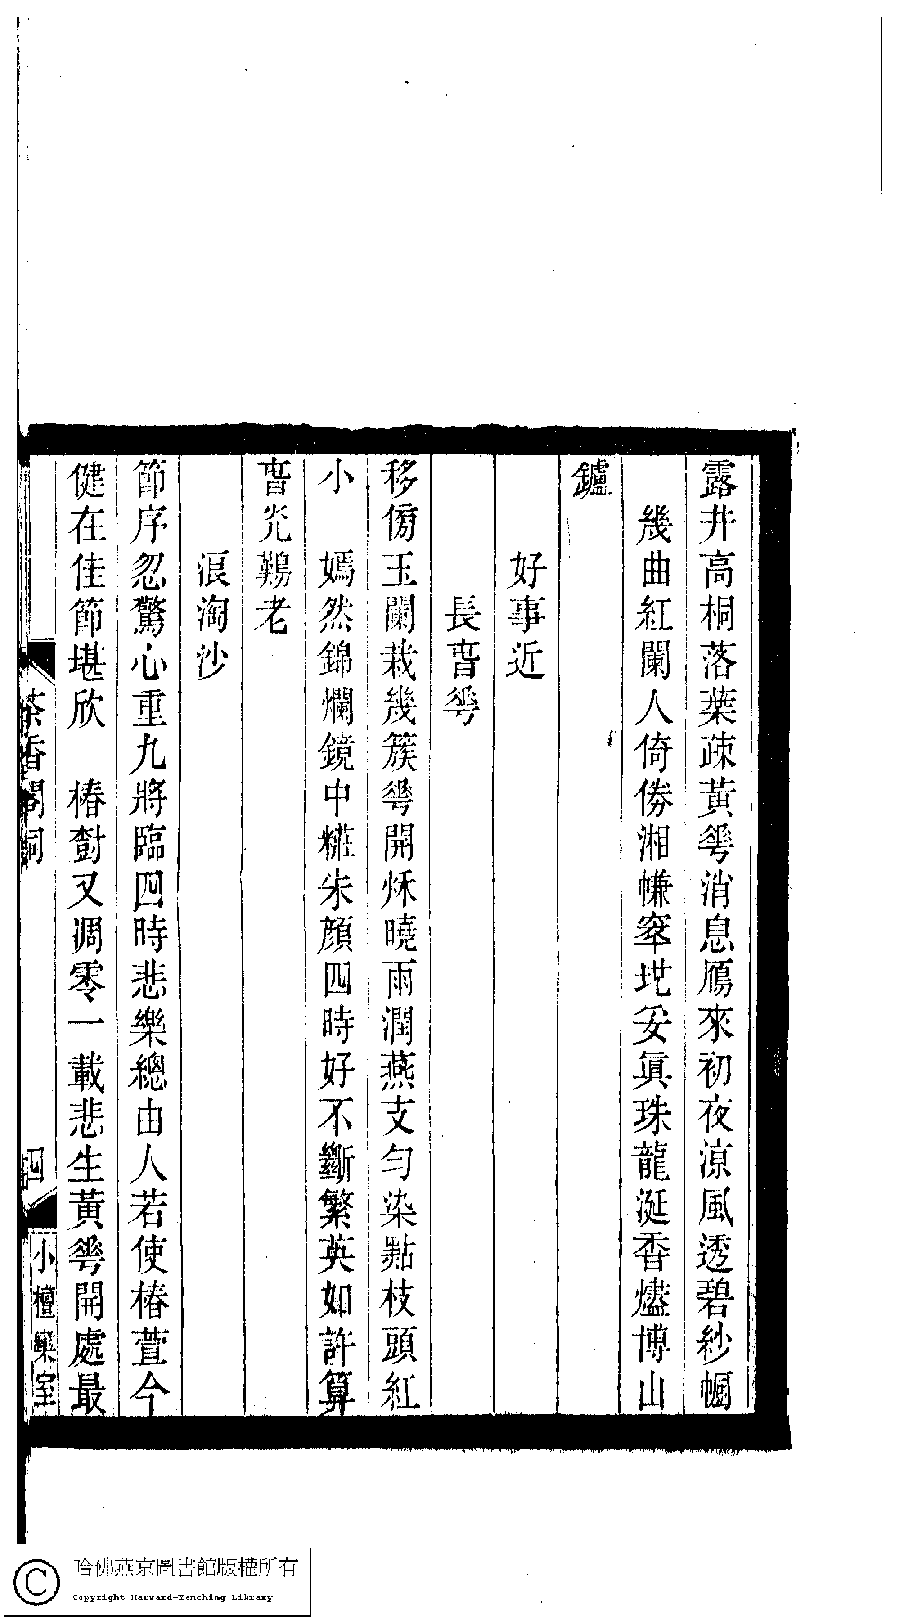 露井高桐落葉疎黃蕚消息鴈來初夜涼風透碧紗幮
幾曲紅闌人倚傍湘㡘窣地妥眞珠龍涎香燼博山
鑪
好事近
長旾蕚
移傍玉闌栽幾簇蕚開穌曉雨潤燕支勻染點枝頭紅
小　嫣然錦爛鏡中糚朱顏四時好不斷繁英如許算
旾光鷄老
浪淘沙
節序忽驚心重九將臨四時悲樂總由人若使椿萱今
健在佳節堪欣　椿𣗳又凋零一載悲生黃蕚開處最
茶香閣詞
四
小檀欒室
哈佛燕京圖書館版權所有
Copyright Harvard-Yenching Library